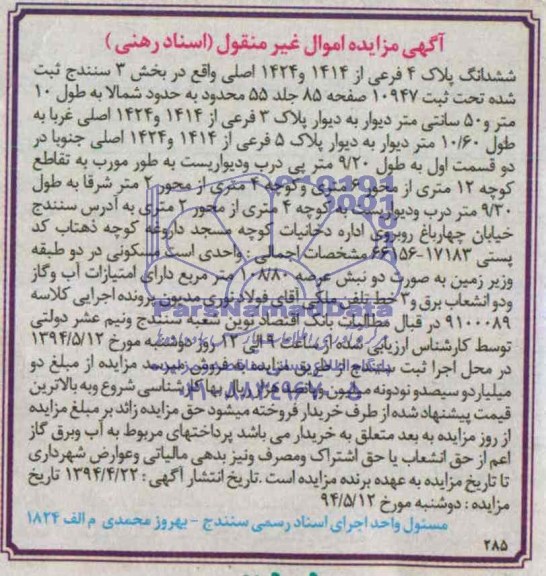 آگهی مزایده اموال غیر منقول (اسناد رهنی)
ششدانگ پلاک ۴ فرعی از ۱۴۱۴ و۱۴۲۴ اصلی واقع در بخش ۳ سنندج ثبت
شده تحت ثبت ۱۰۹۴۷ صفحه ۸۵ جلد ۵۵ محدود به حدود شمالا به طول ۱۰
متر و۵۰ سانتی متر دیوار به دیوار پلاک ۳ فرعی از ۱۴۱۴ و۱۴۲۴ اصلی غربا به
طول ۱۰/۶۰ متر دیوار به دیوار پلاک ۵ فرعی از ۱۴۱۴ و۱۴۲۴ اصلی جنوبا در
دو قسمت اول به طول ۹/۲۰ متر پی درب ودیواریست به طور مورب به تقاطع
کوچه ۱۲ متری از محور ۶ متری وکوچه ۴ متری از محور ۲ متر شرقا به طول
۹/۳۰ متر درب ودیواریست به کوچه ۴ متری از محور ۲ متری به آدرس سنندج
خیابان چهارباغ روبروی اداره دخانیات کوچه مسجد داروغه کوچه ذهتاب کد
پستی ۱۷۱۸۳-۶۶۱۵۶ مشخصات اجمالی : واحدی است مسکونی در دو طبقه
وزیر زمین به صورت دو نبش عرصه ۱۰۸/۸۰ متر مربع دارای امتیازات آب وگاز
ودو انشعاب برق و۳ خط تلفن ملکی آقای فولاد نوری مدیون پرونده اجرایی کلاسه
۹۱۰۰۰۸۹ در قبال مطالبات بانک اقتصاد نوین شعبه سنندج ونیم عشر دولتی
توسط کارشناس ارزیابی شده از ساعت ۹ الی ۱۲ روز دوشنبه مورخ ۱۳۹۴/۵/۱۲
در محل اجرا ثبت سنندج از طریق مزایده به فروش میرسد مزایده از مبلغ دو
میلیارد و سیصدو نودونه میلیون ریال بها کارشناسی شروع وبه بالاترین
قیمت پیشنهاد شده از طرف خریدار فروخته میشود حق مزایده زائد بر مبلغ مزایده
از روز مزایده به بعد متعلق به خریدار می باشد پرداختهای مربوط به آب وبرق گاز
اعم از حق انشعاب یا حق اشتراک ومصرف ونیز بدهی مالیاتی وعوارض شهرداری
تا تاریخ مزایده به عهده برنده مزایده است .تاریخ انتشار آگهی : ۱۳۹۴/۴/۲۲ تاریخ
مزایده : دوشنبه مورخ ۹۴/۵/۱۲
مسئول واحد اجرای اسناد رسمی سنندج - بهروز محمدی م الف ۱۸۲۴
۲۸۵
ParsNamadData